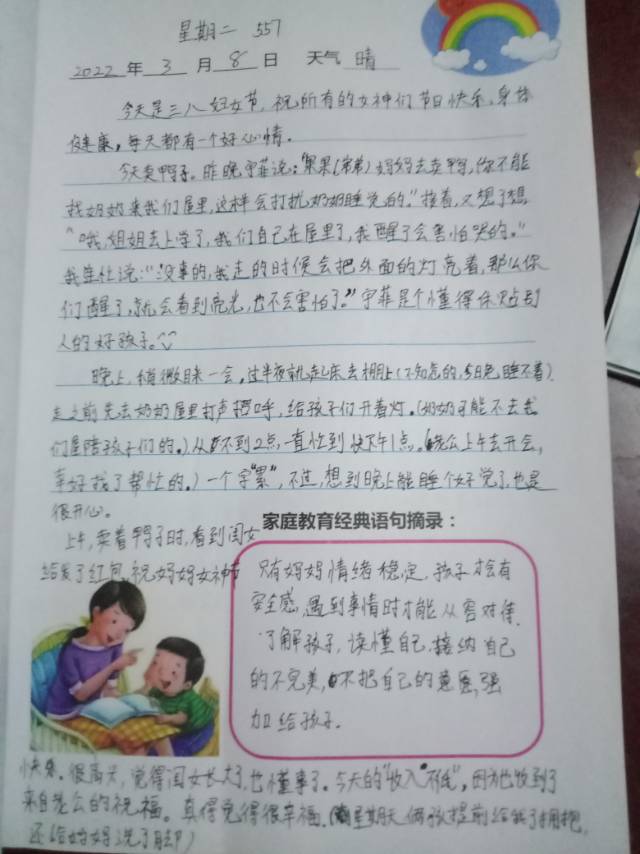 星期二 557
2022 年 3 月 8 日 天气 晴
今天是三八妇女节,祝所有的女神们节日快乐,身体
健康,每天都有一个好心情。
今天卖鸭子。昨晚宇菲说:"果果(弟弟)妈妈去卖鸭,你不能
找奶奶来我们屋里,这样会打扰奶奶睡觉的。"接着,又想了想
"哦,姐姐去上学了,我们自己在屋里了,我醒了会害怕哭的。"
我连忙说:"没事的,我走的时候会把外面的灯亮着,那么你
们醒了,就会看到亮光,也不会害怕了。"宇菲是个懂得体贴别
人的好孩子。
晚上,稍微眯一会,过半夜就起床去棚上(不知怎的,今日也睡不着)
走之前先去奶奶屋里打声招呼,给孩子们开着灯。(奶奶可能不去我
们屋陪孩子们的。)从不到2点,一直忙到快下午1点。(老公上午去开会,
幸好找了帮忙的。)一个字"累",不过,想到晚上能睡个好觉了,也是
很开心。
上午,卖着鸭子时,看到闺女
给发了红包,祝妈妈女神节
家庭教育经典语句摘录:
只有妈妈情绪稳定,孩子才会有
安全感,遇到事情时才能从容对待.
了解孩子,读懂自己,接纳自己
的不完美,不把自己的意愿,强
加给孩子.
快乐。很高兴,觉得闺女长大了,也懂事了。今天的"收入"不低",因为也收到了
来自老公的祝福。真得觉得很幸福.(星期天俩孩提前给我了拥抱,
还给妈妈洗了脚)